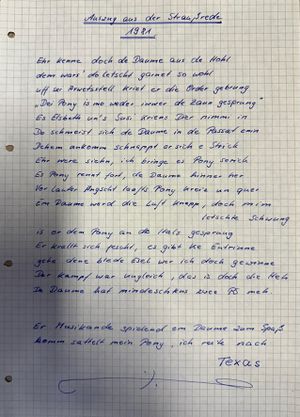 Auszug aus der Straußrede
1981
Ehr kenne doch de Daume aus de Hohl
dem wars' do letscht garnet so wohl
uff su Arwetsstell kriet er die Order gebrung
"Dei Pony is me weder inwer de Zaun gesprung"
Es Elsbeth un's Susi kriens Dier nimmi in
Do schmeist sich de Daume in de Passat enin
Dehem ankomm schnappt er sich e Strick
Ehr were siehn, ich bringe es Pony serick
Es Pony rennt fort, de Daume hinner her
Vor lauter Angscht laafts Pony kreiz un quer
Em Daume werd die Luft knapp, doch mim
letschte Schwung
is er dem Pony an de Hals gesprung
Er krallt sich pescht, es gibt ke Entrinne
gehe dene blede Esel wer ich doch gewinne
Der Kampf war ungleich, das is doch die Heh
De Daume hat mindeschkens zwee PS meh.
Er Musikande spielend em Daume zum Spaß
komm sattelt mein Pony, ich reite nach
Texas